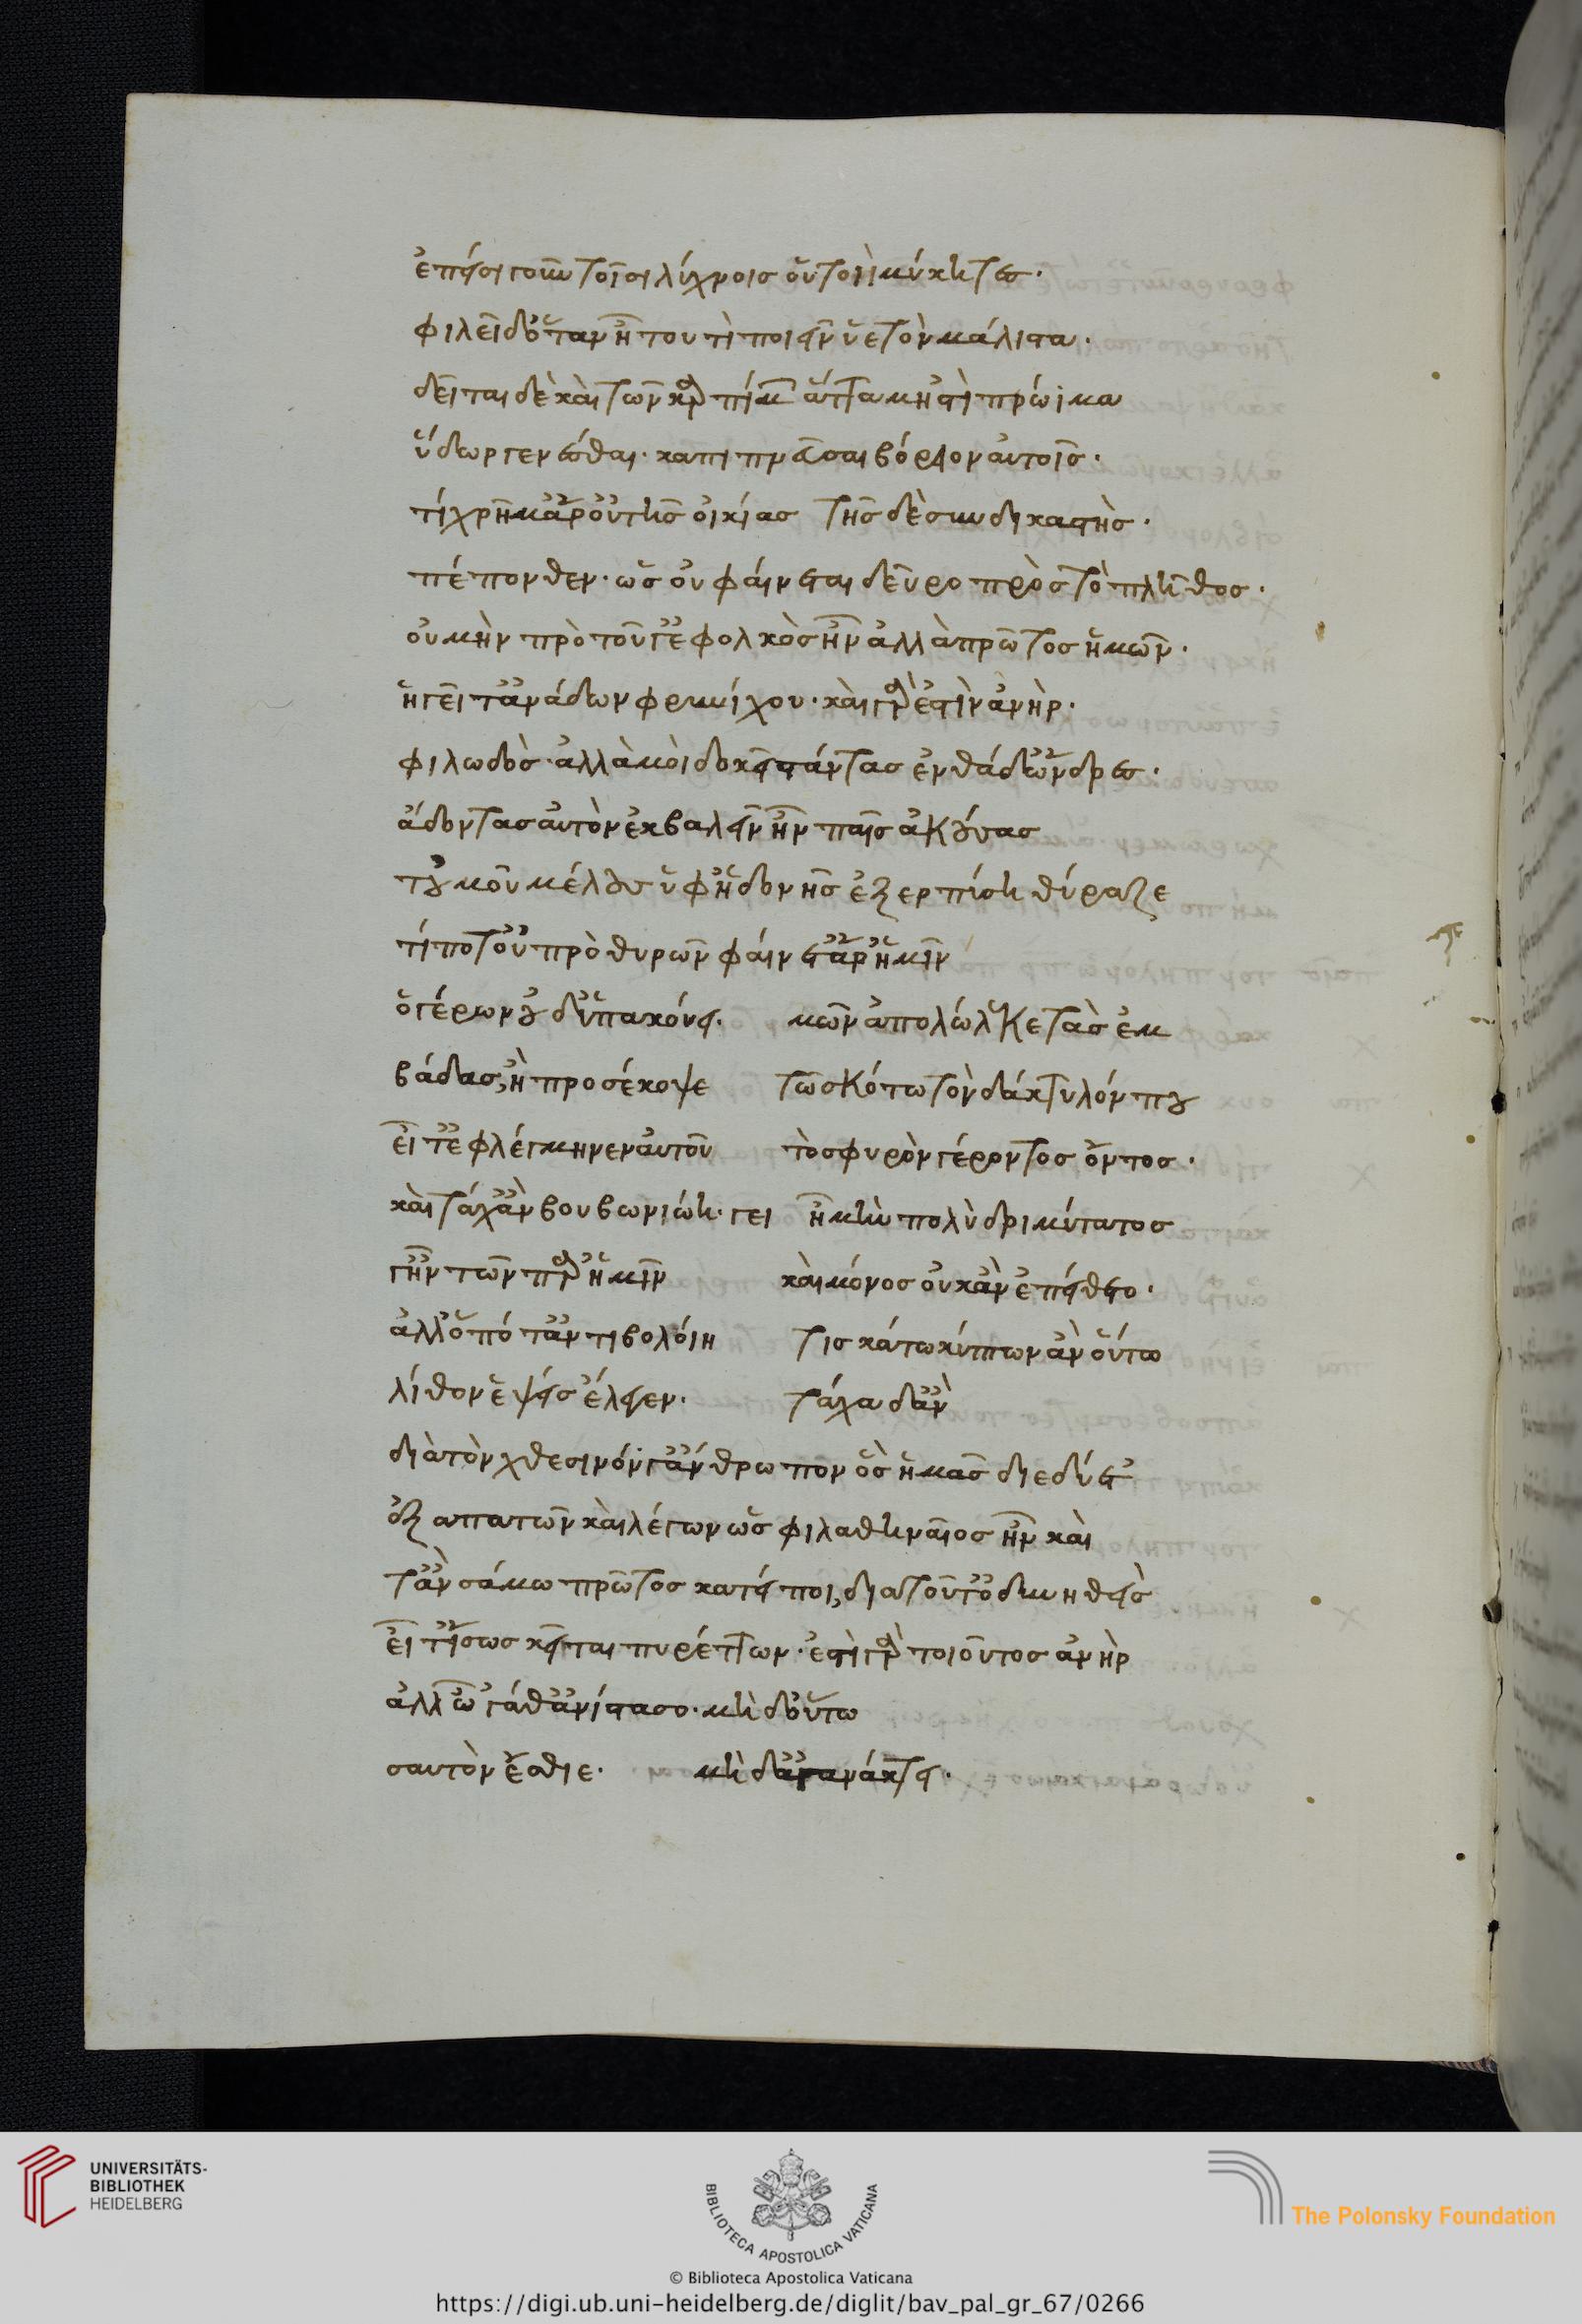 ἔπεισι γοῦν τοῖσι λύχνοις οὑτοιῒ μύκητες·
φιλεῖ δ' ὅταν ἦ τουτὶ ποιεῖν ὑετὸν μάλιστα·
δεῖται δὲ καὶ τῶν καρπίμ ἅττα μή 'στι πρώιμα
ὕδωρ γενέσθαι· κἀπιπνεῦσαι βόρειον αὐτοῖς·
τί χρῆμ' ἆρ' οὑκ τῆς οἰκίας τῆσδε συνδικαστὴς·
πέπονθεν· ὡς οὐ φαίνεται δεῦρο πρὸς τὸ πλῆθος·
οὐ μὴν πρὸ τοῦ γ' ἐφολκὸς ἦν ἀλλὰ πρῶτος ἡμῶν·
ἡγεῖτ' ἂν ἄδων φρυνίχου· καὶ γὰρ ἐστὶν ἀνὴρ·
φιλωδὸς· ἀλλά μοι δοκεῖ στάντας ἐνθάδ' ὦνδρες·
ἄδοντας αὐτὸν ἐκβαλεῖν ἤν πως ἀκούσας
τοὐμοῦ μέλους ὑφ' ἡδονῆς ἐξερπύση θύραζε
τί ποτ' οὐ πρὸ θυρῶν φαίνετ' ἄρ' ἡμῖν
ὁ γέρων οὐδ' ὑπακούει. μῶν ἀπολώλεκε τὰς ἐμ
βάδας, ἢ προσέκοψε τῶ σκότω τὸν δάκτυλόν που
εἶτ' ἐφλέγμηνεν αὐτοῦ τὸ σφυρὸν γέροντος ὄντος·
καὶ τάχ' ἂν βουβωνιώη· γει ἦ μὴν πολὺ δριμύτατος
γ' ἦν τῶν παρ' ἡμῖν καὶ μόνος οὐκ ἂν ἐπείθετο·
ἀλλ' ὁπότ' ἀντιβολόιη τις κάτω κύπτων ἂν οὕτω
λίθον ἕψεις ἔλεγεν· τάχα δ' ἂν
διὰ τὸν χθεσινόν γ' ἄνθρωπον ὃς ἡμᾶς διεδύετ'
ἐξαπατῶν καὶ λέγων ὡς φιλαθήναιος ἦν καὶ
τἀν σάμω πρῶτος κατείποι, διὰ τοῦτ' ὀδυνηθεὶς
εἶτ' ἴσως κεῖται πυρέττων· ἐστὶ γὰρ τοιοῦτος ἀνὴρ
ἀλλ' ὦ 'γάθ' ἀνίστασο· μὴ δ' οὕτω
σαυτὸν ἔσθιε· μὴ δ' ἀγανάκτει·
UNIVERSITÄTS-
BIBLIOTHEK
HEIDELBERG
BIBLIOTECA APOSTOLICA VATICANA
The Polonsky Foundation
© Biblioteca Apostolica Vaticana
https://digi.ub.uni-heidelberg.de/diglit/bav_pal_gr_67/0266